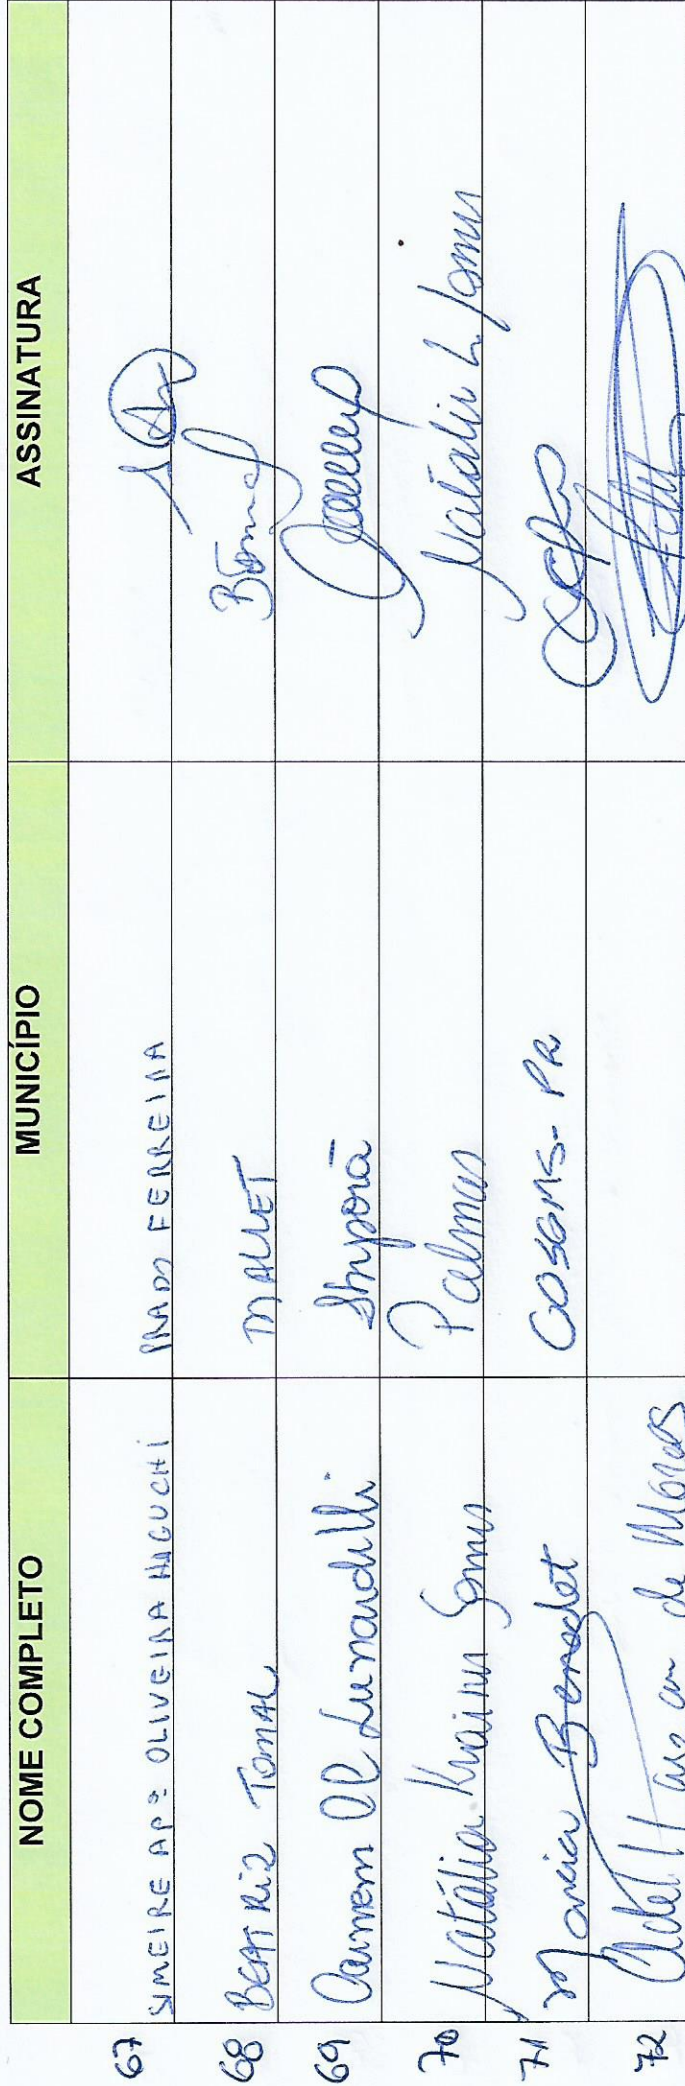 NOME COMPLETO MUNICÍPIO ASSINATURA
67 SIMEIRE APª OLIVEIRA HAGUCHI PRADO FERREIRA
68 BEATRIZ TOMAL MALLET BTomal
69 Carmem Lunardelli Iporã
70 Natália Kraim Gomes Palmas Natalia K Gomes
71 Marcia Benedet COSEMS-PR
72 de Morais